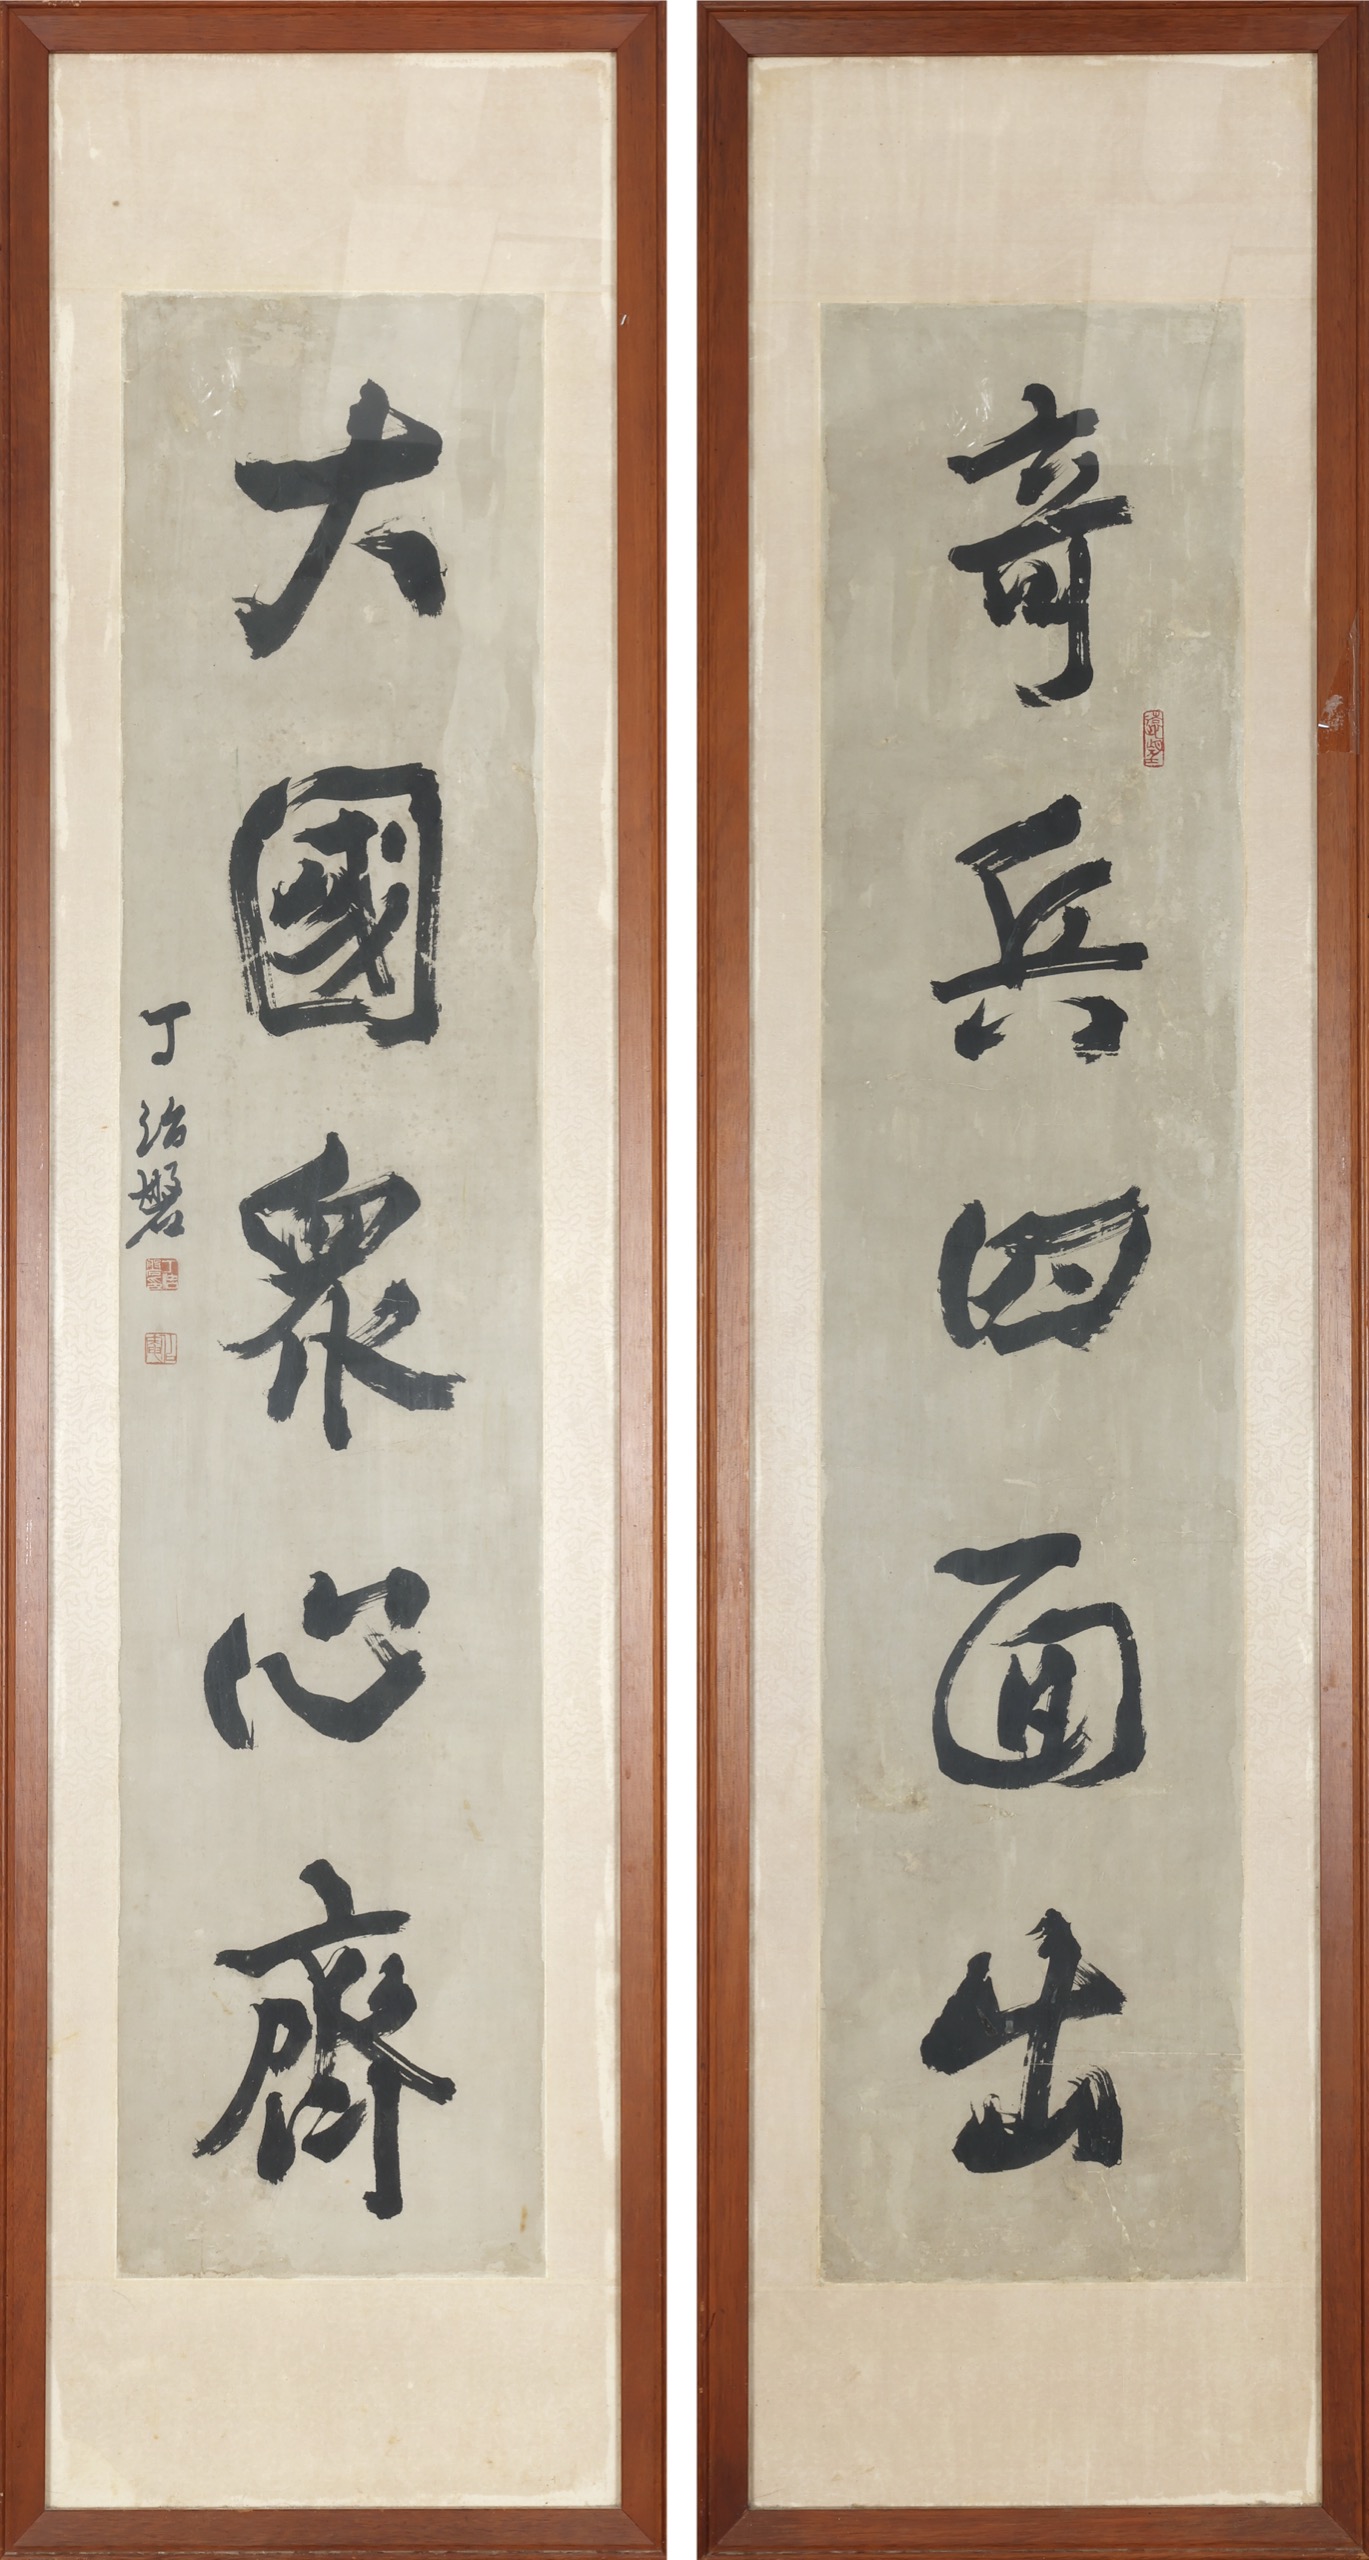 奇兵四面出
大國眾心齊
丁治磐